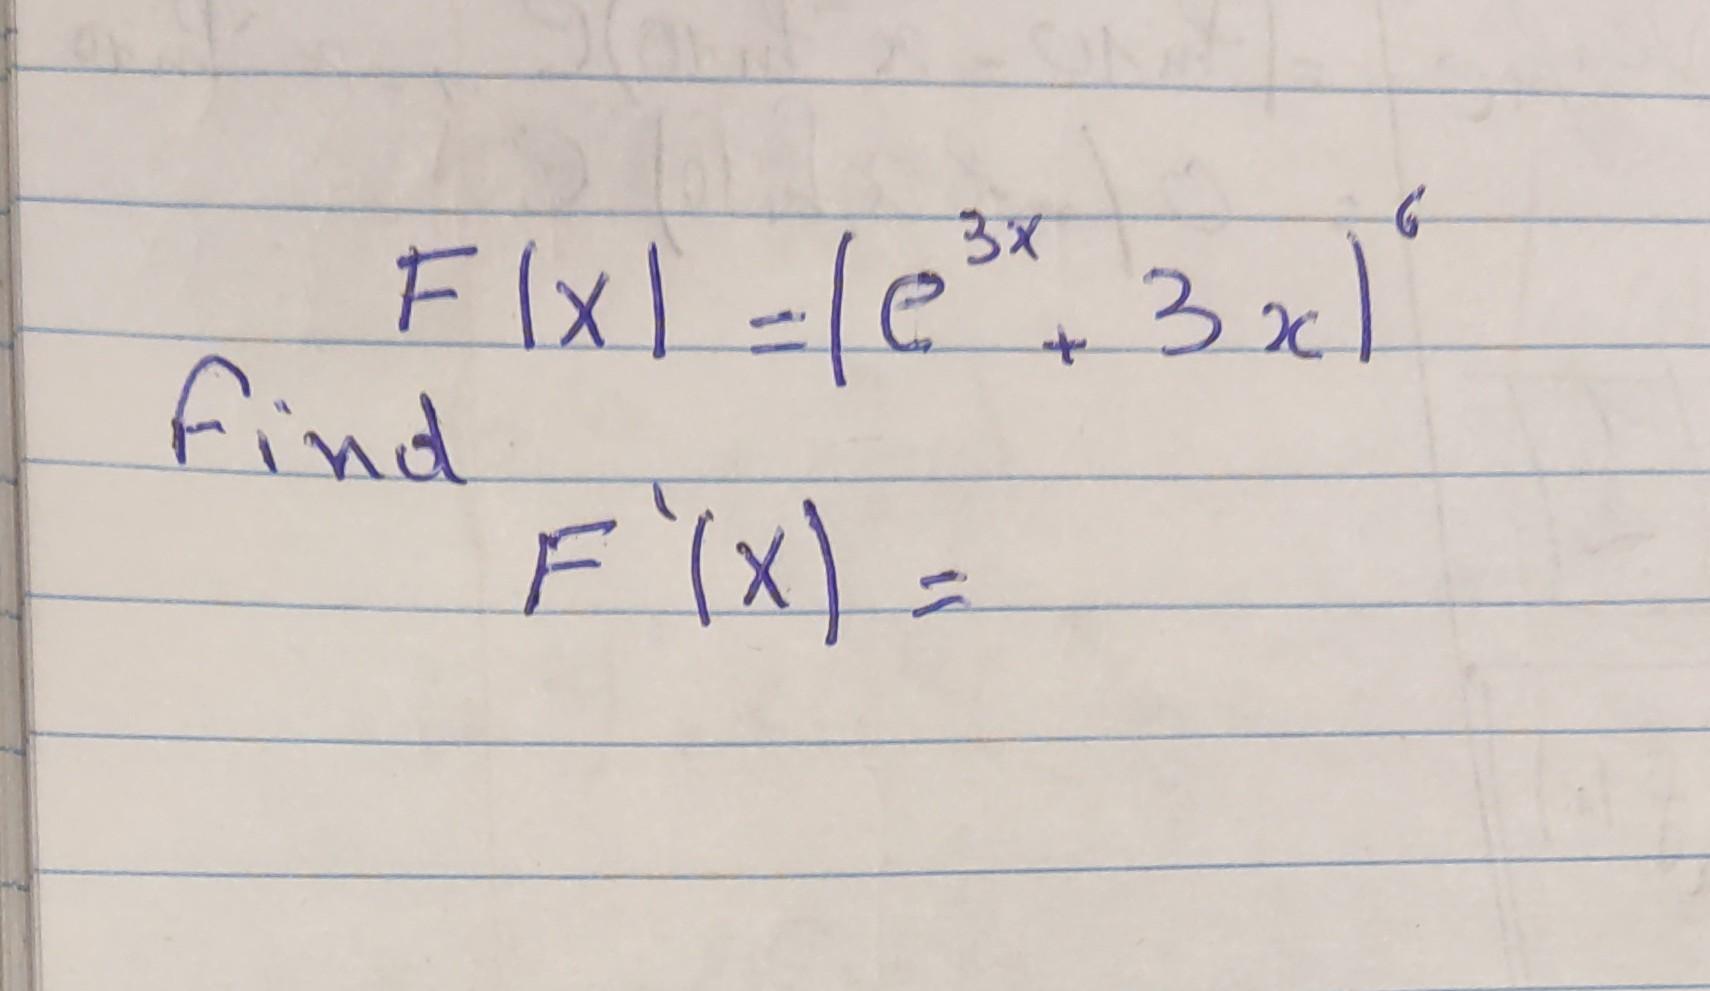 F(x) = (e^3x + 3x)^6
find
F'(x) =